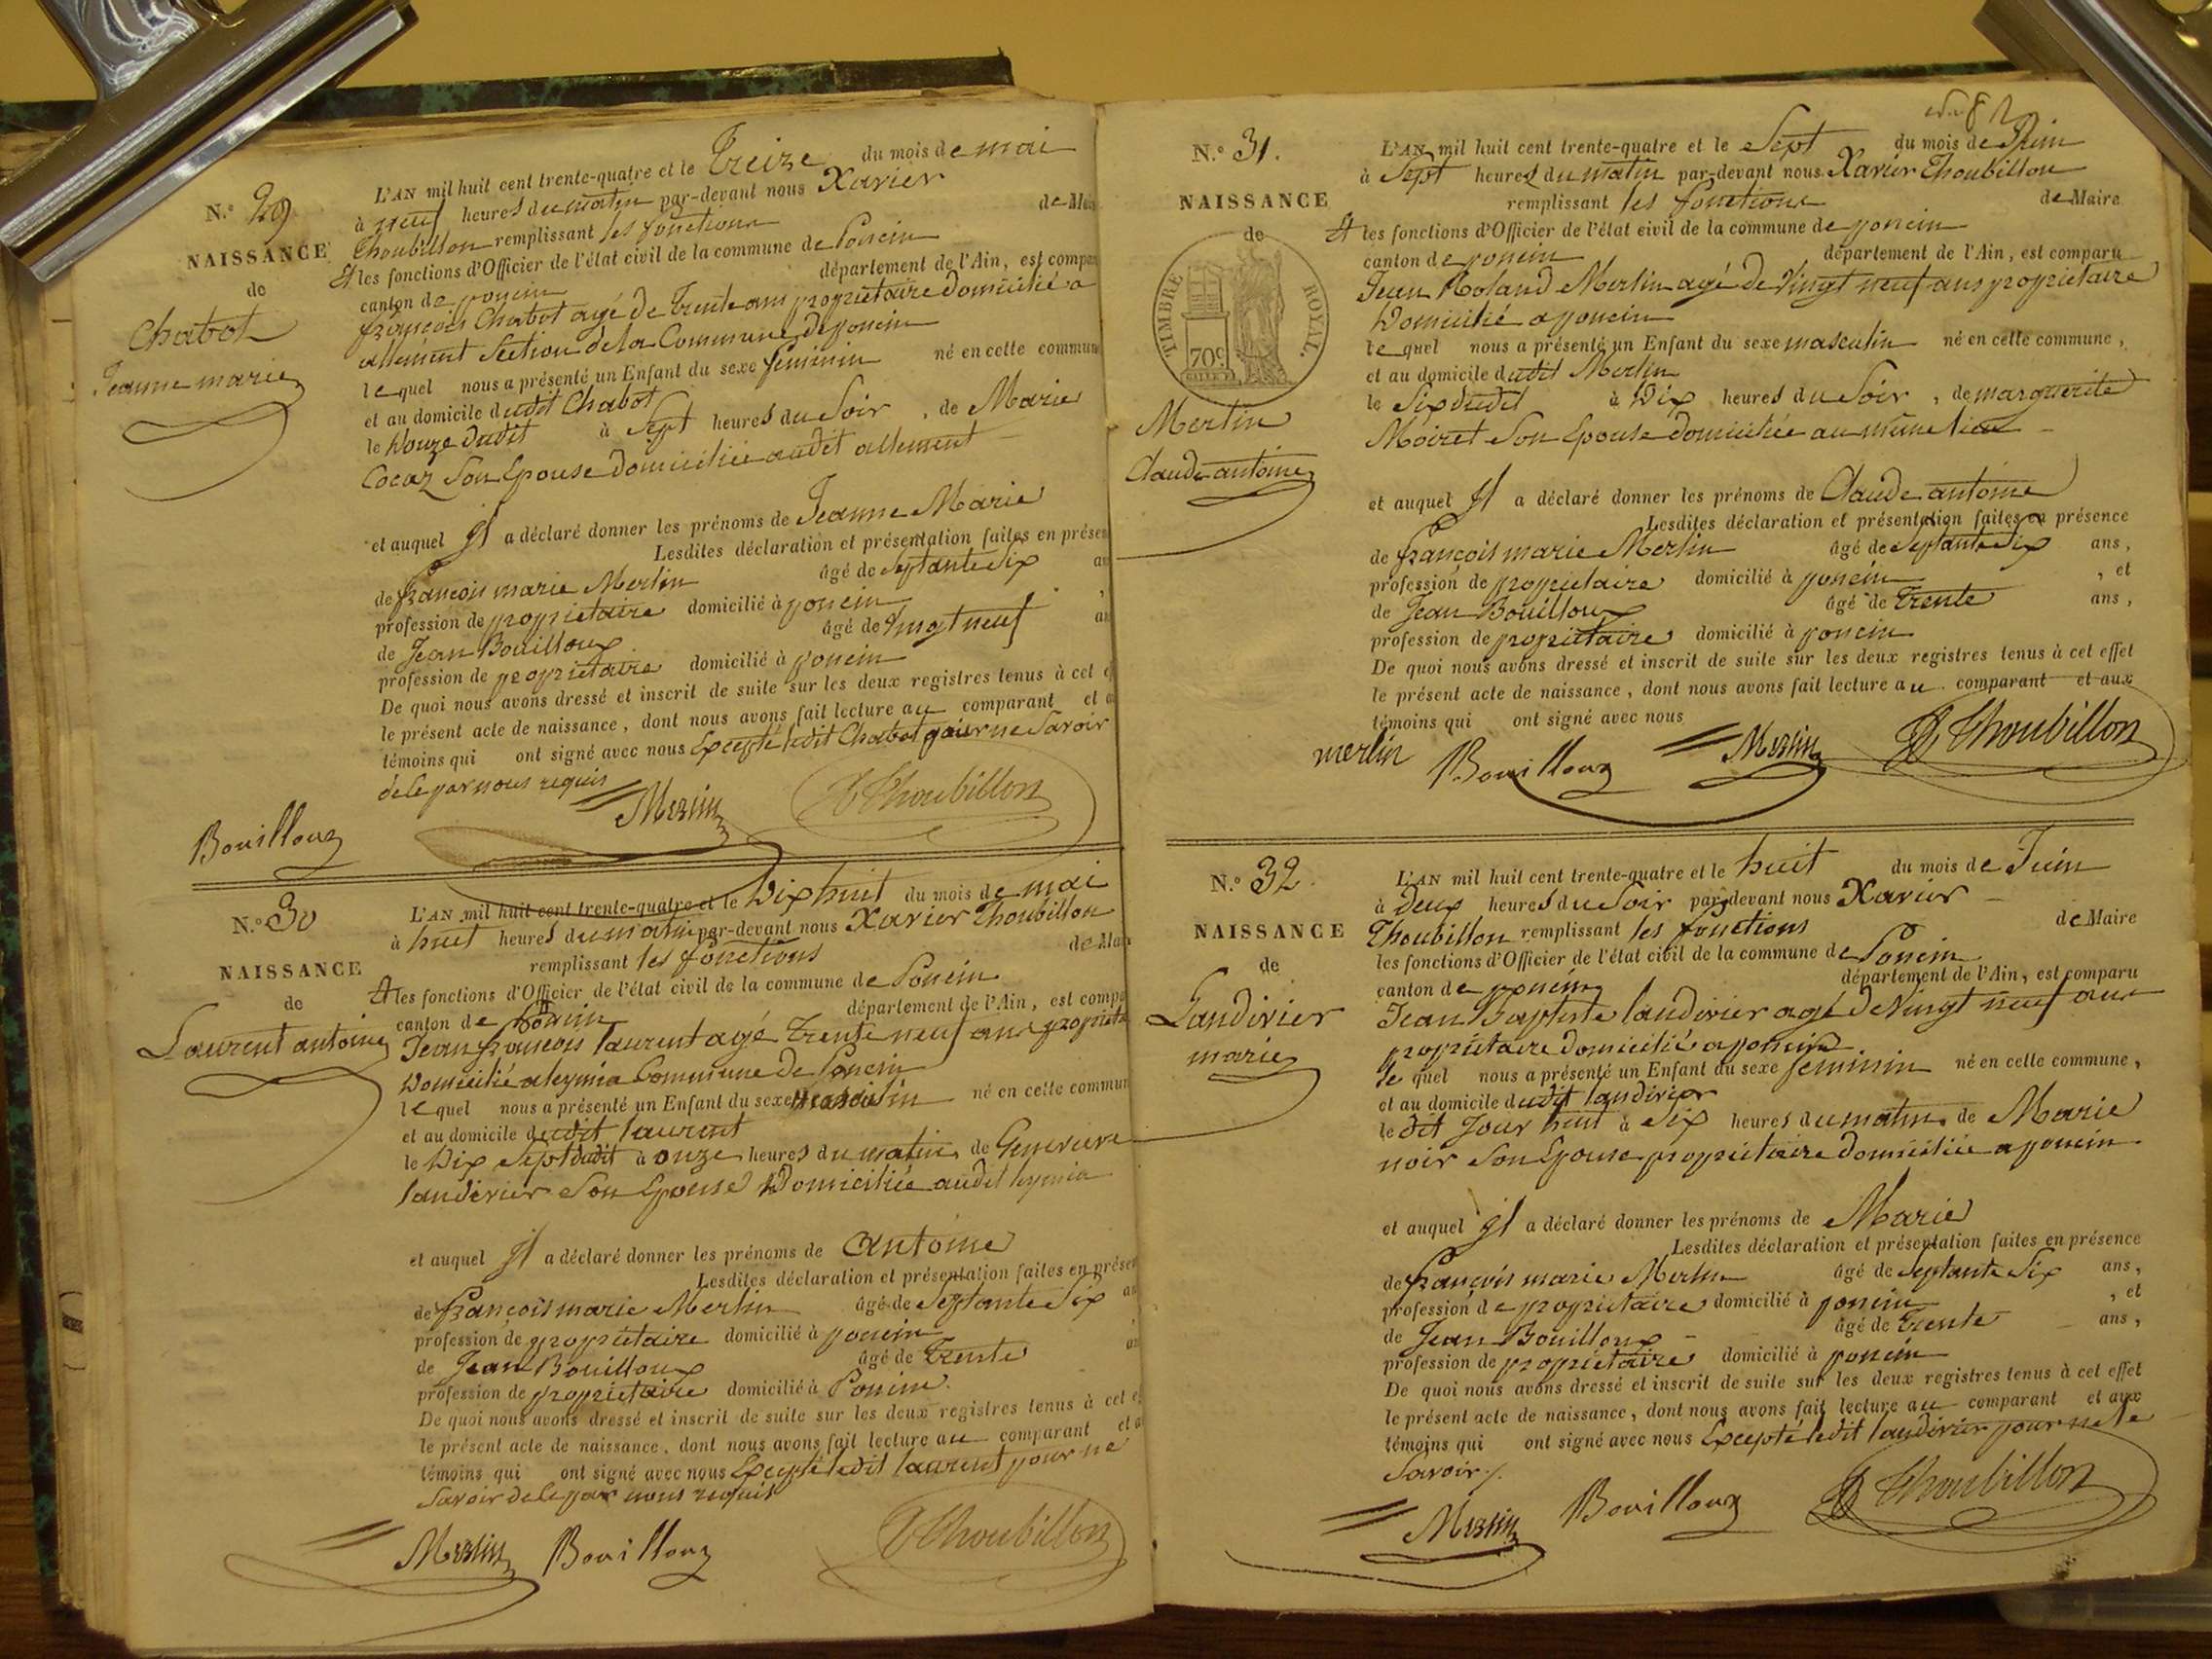 N.o 29
NAISSANCE
de
Chabot
Jeanne marie
L'AN mil huit cent trente-quatre et le Treize du mois de mai
à neuf heures du matin par-devant nous Xavier
Thoubillon remplissant les fonctions de Mai
Et les fonctions d'Officier de l'état civil de la commune de Poncin
canton de poncin département de l'Ain, est compa
françois Chabot agé de Trente ans propriétaire domicilié a
allement Section de la Commune de poncin
lequel nous a présenté un Enfant du sexe feminin né en cette commun
et au domicile dudit Chabot
le Douze dudit à Sept heures du Soir, de Marie
Cocaz Son Epouse domiciliée audit allement
et auquel Il a déclaré donner les prénoms de Jeanne Marie
Lesdites déclaration et présentation faites en présen
de françois marie Merlin âgé de Septante Six an
profession de propriétaire domicilié à poncin ,
de Jean Bouilloux âgé de Vingt neuf an
profession de propriétaire domicilié à poncin
De quoi nous avons dressé et inscrit de suite sur les deux registres tenus à cet e
le présent acte de naissance, dont nous avons fait lecture au comparant et a
témoins qui ont signé avec nous Excepté ledit Chabot pour ne Savoir
dele par nous requis
Bouilloux Merlin X Thoubillon
N.o 30
NAISSANCE
de
Laurent antoine
L'AN mil huit cent trente-quatre et le Dix huit du mois de mai
à huit heures du matin par-devant nous Xavier Thoubillon
remplissant les fonctions de Mai
Et les fonctions d'Officier de l'état civil de la commune de Poncin
canton de Poncin département de l'Ain, est compa
Jean françois laurent agé Trente neuf ans propriéta
Domicilié a leymia Commune de Poncin
lequel nous a présenté un Enfant du sexe masculin né en cette commun
et au domicile dudit laurent
le Dix Sept dudit à onze heures du matin, de Genevieve
landivier Son Epouse Domiciliée audit leymia
et auquel Il a déclaré donner les prénoms de antoine
Lesdites déclaration et présentation faites en présen
de françois marie Merlin âgé de Septante Six an
profession de propriétaire domicilié à poncin
de Jean Bouilloux âgé de Trente an
profession de propriétaire domicilié à Poncin.
De quoi nous avons dressé et inscrit de suite sur les deux registres tenus à cet e
le présent acte de naissance, dont nous avons fait lecture au comparant et a
témoins qui ont signé avec nous Excepté ledit laurent pour ne
Savoir dele par nous requis
Merlin Bouilloux X Thoubillon
N.o 31.
NAISSANCE
de
TIMBRE ROYAL.
70c
Merlin
Claude antoine
L'AN mil huit cent trente-quatre et le Sept du mois de Juin
à Sept heures du matin par-devant nous Xavier Thoubillon
remplissant les fonctions de Maire
Et les fonctions d'Officier de l'état civil de la commune de poncin
canton de poncin département de l'Ain, est comparu
Jean Roland Merlin agé de Vingt neuf ans propriétaire
Domicilié a poncin
lequel nous a présenté un Enfant du sexe masculin né en cette commune,
et au domicile dudit Merlin
le Six dudit à Dix heures du Soir, de marguerite
Moiret Son Epouse domiciliée au même lieu
et auquel Il a déclaré donner les prénoms de Claude antoine
Lesdites déclaration et présentation faites en présence
de françois marie Merlin âgé de Septante Six ans,
profession de propriétaire domicilié à poncin , et
de Jean Bouilloux âgé de Trente ans,
profession de propriétaire domicilié à poncin
De quoi nous avons dressé et inscrit de suite sur les deux registres tenus à cet effet
le présent acte de naissance, dont nous avons fait lecture au comparant et aux
témoins qui ont signé avec nous
merlin Bouilloux Merlin X Thoubillon
N.o 32.
NAISSANCE
de
Landivier
marie
L'AN mil huit cent trente-quatre et le huit du mois de Juin
à Deux heures du Soir par-devant nous Xavier
Thoubillon remplissant les fonctions de Maire
les fonctions d'Officier de l'état civil de la commune de Poncin
canton de poncin département de l'Ain, est comparu
Jean Baptiste landivier agé de Vingt neuf ans
propriétaire domicilié a poncin
lequel nous a présenté un Enfant du sexe feminin né en cette commune,
et au domicile dudit landivier
le dit Jour huit à Six heures du matin, de Marie
noir Son Epouse propriétaire domiciliée a poncin
et auquel Il a déclaré donner les prénoms de Marie
Lesdites déclaration et présentation faites en présence
de françois marie Merlin âgé de Septante Six ans,
profession de propriétaire domicilié à poncin , et
de Jean Bouilloux âgé de Trente ans,
profession de propriétaire domicilié à poncin
De quoi nous avons dressé et inscrit de suite sur les deux registres tenus à cet effet
le présent acte de naissance, dont nous avons fait lecture au comparant et aux
témoins qui ont signé avec nous Excepté ledit landivier pour ne le
Savoir ./.
Merlin Bouilloux X Thoubillon